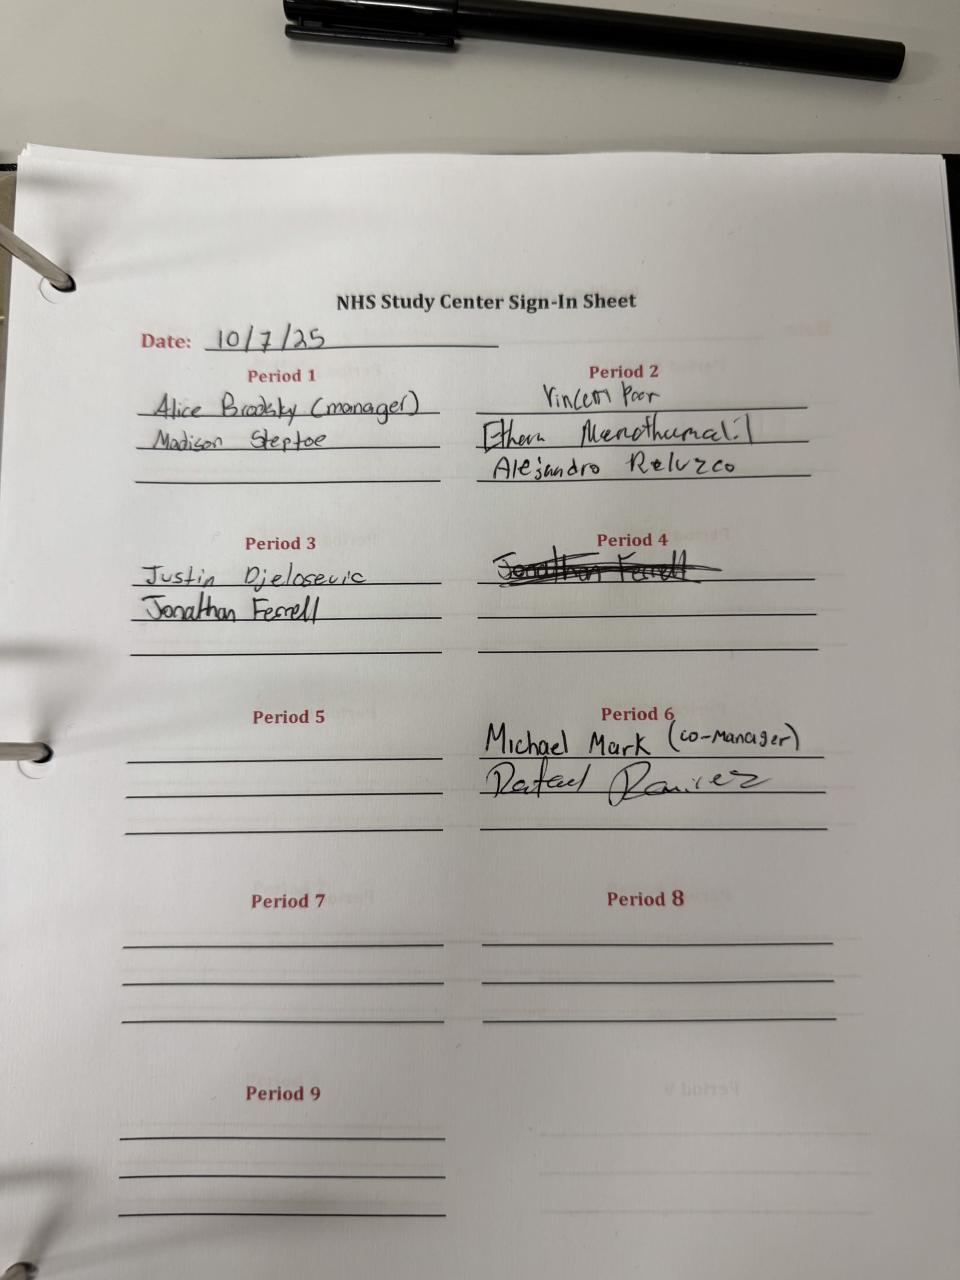 NHS Study Center Sign-In Sheet
Date: 10/7/25
Period 1
Alice Brodsky (manager)
Madison Steptoe
Period 2
Vincent Poor
Ethan Manothumalil
Alejandro Reluzco
Period 3
Justin Djelosevic
Jonathan Ferrell
Period 4
Jonathan Ferrell
Period 5
Period 6
Michael Mark (co-manager)
Rafael Ramirez
Period 7
Period 8
Period 9